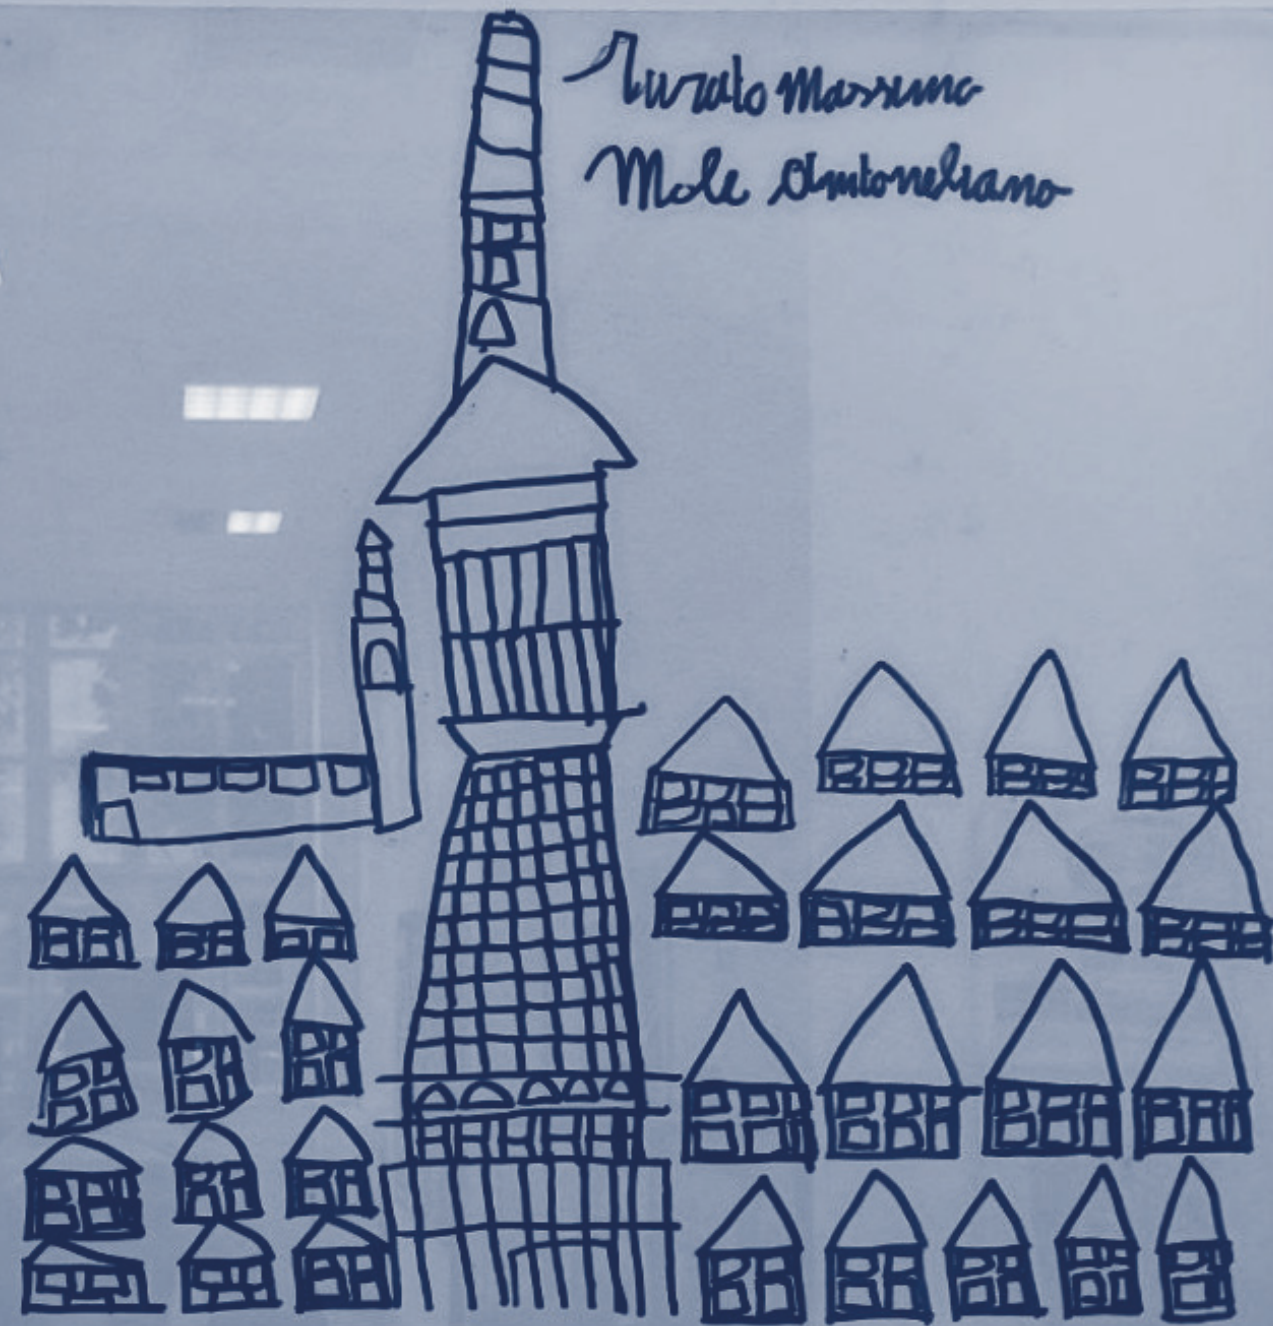 Turato Massimo
Mole Antoneliano